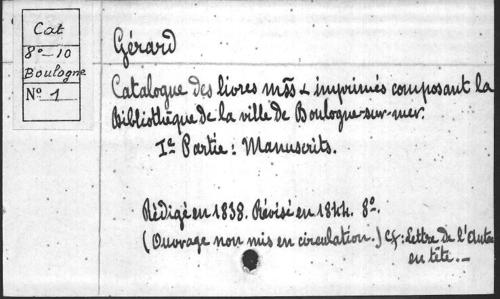 Cat
8°-10
Boulogne
N° 1
Gérard
Catalogue des livres mss & imprimés composant la
Bibliothèque de la ville de Boulogne-sur-mer.
Ie Partie : Manuscrits.
Rédigé en 1838. Révisé en 1844. 8°.
(Ouvrage non mis en circulation.) Cf: Lettre de l'Auteu
en tête. —